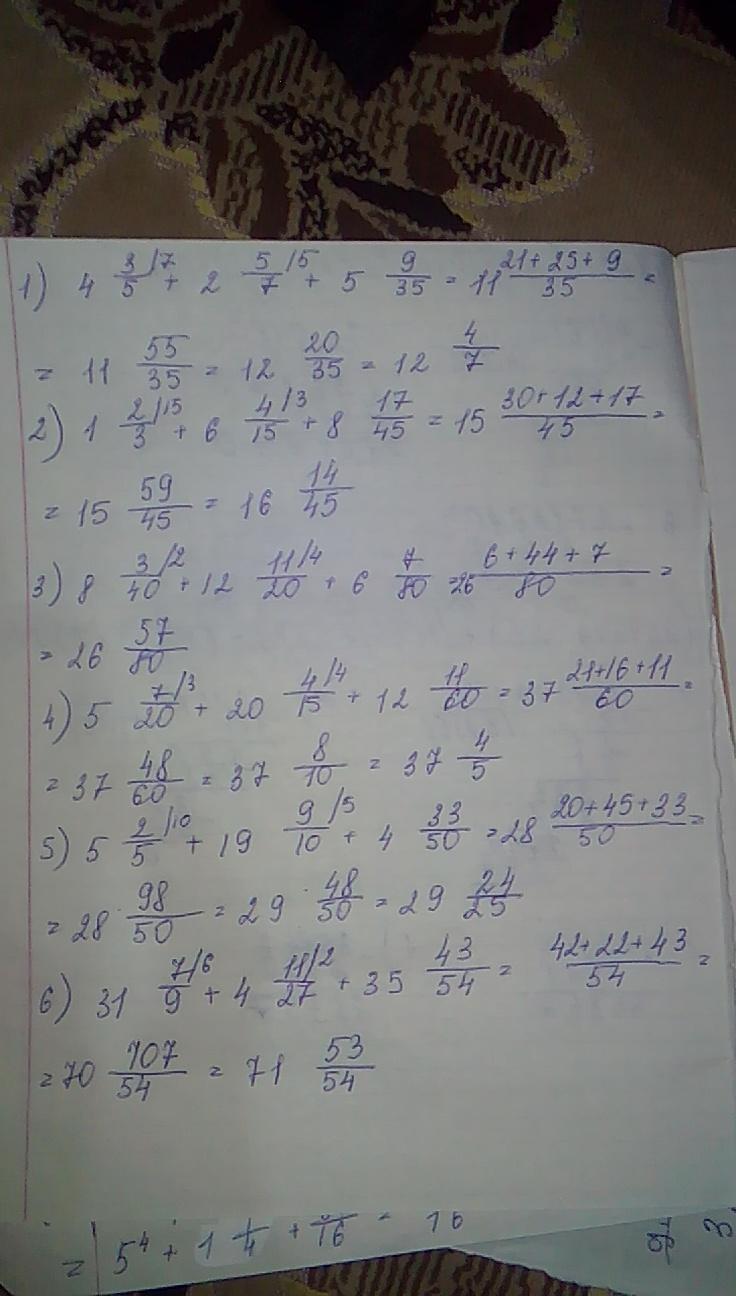 1) 4 3/5 /7 + 2 5/7 /5 + 5 9/35 = 11 21+25+9/35 =
= 11 55/35 = 12 20/35 = 12 4/7
2) 1 2/3 /15 + 6 4/15 /3 + 8 17/45 = 15 30+12+17/45 =
= 15 59/45 = 16 14/45
3) 8 3/40 /2 + 12 11/20 /4 + 6 7/80 = 26 6+44+7/80 =
= 26 57/80
4) 5 7/20 /3 + 20 4/15 /4 + 12 11/60 = 37 21+16+11/60 =
= 37 48/60 = 37 8/10 = 37 4/5
5) 5 2/5 /10 + 19 9/10 /5 + 4 33/50 = 28 20+45+33/50 =
= 28 98/50 = 29 48/50 = 29 24/25
6) 31 7/9 /6 + 4 11/27 /2 + 35 43/54 = 42+22+43/54 =
= 70 107/54 = 71 53/54